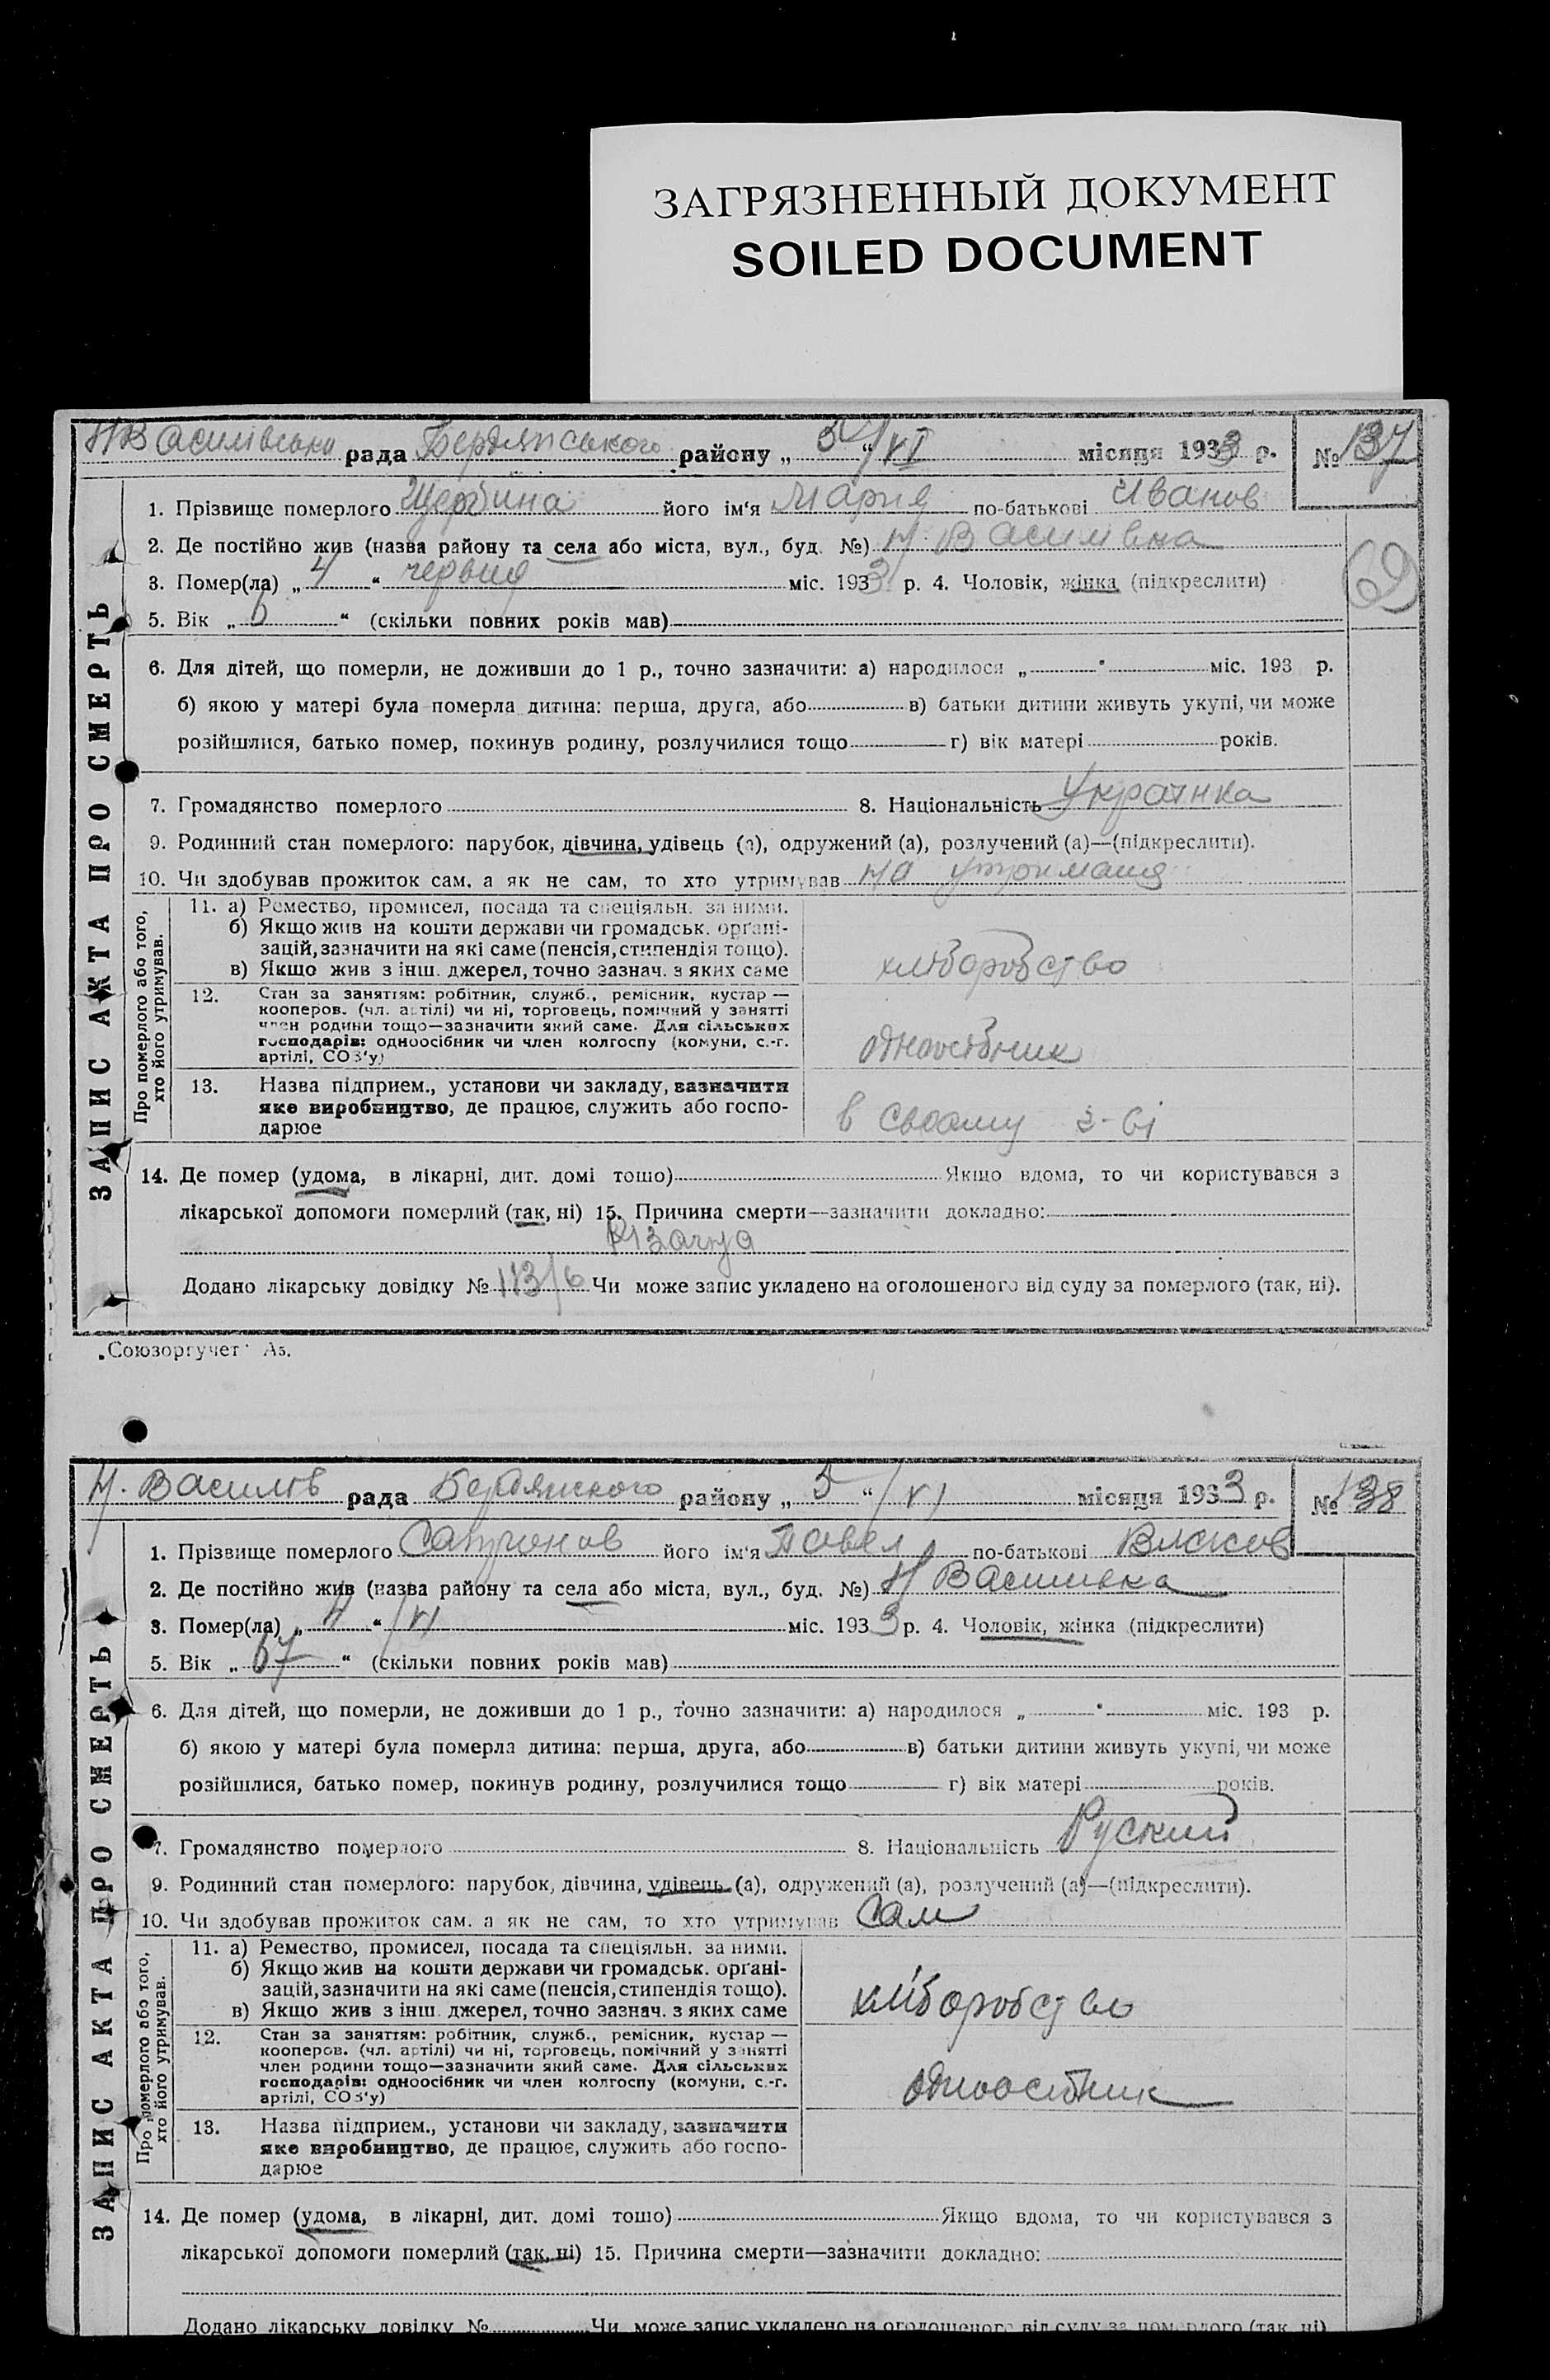 ЗАГРЯЗНЕННЫЙ ДОКУМЕНТ
SOILED DOCUMENT
НВасилівська рада Бердянського району „ 5 “ /VI місяця 1933 р. № 137
1. Прізвище померлого Щербина його ім'я Мария по-батькові Иванов
2. Де постійно жив (назва району та села або міста, вул., буд. №) Н. Василівка
3. Помер(ла) „ 4 “ червня міс. 1933 р. 4. Чоловік, жінка (підкреслити)
69
5. Вік „ 6 “ (скільки повних років мав)
6. Для дітей, що померли, не доживши до 1 р., точно зазначити: а) народилося „ “ міс. 193 р.
б) якою у матері була померла дитина: перша, друга, або в) батьки дитини живуть укупі, чи може
розійшлися, батько помер, покинув родину, розлучилися тощо г) вік матері років.
7. Громадянство померлого 8. Національність Українка
9. Родинний стан померлого: парубок, дівчина, удівець (а), одружений (а), розлучений (а)—(підкреслити).
10. Чи здобував прожиток сам, а як не сам, то хто утримував на утриманя
Про померлого або того, хто його утримував.
11. а) Ремество, промисел, посада та спеціяльн. за ними.
б) Якщо жив на кошти держави чи громадськ. орґані-
зацій, зазначити на які саме (пенсія, стипендія тощо).
в) Якщо жив з інш. джерел, точно зазнач. з яких саме
хліборобство
12. Стан за заняттям: робітник, служб., ремісник, кустар —
кооперов. (чл. артілі) чи ні, торговець, помічний у занятті
член родини тощо—зазначити який саме. Для сільських
господарів: одноосібник чи член колгоспу (комуни, с.-г.
артілі, СОЗ'у)
одноосібник
13. Назва підприєм., установи чи закладу, зазначити
яке виробництво, де працює, служить або госпо-
дарює
в своаму з-ві
14. Де помер (удома, в лікарні, дит. домі тощо) Якщо вдома, то чи користувався з
лікарської допомоги померлий (так, ні) 15. Причина смерти—зазначити докладно:
Додано лікарську довідку № 113/6 Чи може запис укладено на оголошеного від суду за померлого (так, ні).
ЗАПИС АКТА ПРО СМЕРТЬ
„Союзоргучет“ А5.
Н. Василів рада Бердянского району „ 5 “ /VI місяця 1933 р. № 138
1. Прізвище померлого його ім'я Павел по-батькові
2. Де постійно жив (назва району та села або міста, вул., буд. №) Н Василивка
3. Помер(ла) „ 4 “ /VI міс. 1933 р. 4. Чоловік, жінка (підкреслити)
5. Вік „ 67 “ (скільки повних років мав)
6. Для дітей, що померли, не доживши до 1 р., точно зазначити: а) народилося „ “ міс. 193 р.
б) якою у матері була померла дитина: перша, друга, або в) батьки дитини живуть укупі, чи може
розійшлися, батько помер, покинув родину, розлучилися тощо г) вік матері років.
7. Громадянство померлого 8. Національність Руский
9. Родинний стан померлого: парубок, дівчина, удівець (а), одружений (а), розлучений (а)—(підкреслити).
10. Чи здобував прожиток сам, а як не сам, то хто утримував Сам
Про померлого або того, хто його утримував.
11. а) Ремество, промисел, посада та спеціяльн. за ними.
б) Якщо жив на кошти держави чи громадськ. орґані-
зацій, зазначити на які саме (пенсія, стипендія тощо).
в) Якщо жив з інш. джерел, точно зазнач. з яких саме
хліборобство
12. Стан за заняттям: робітник, служб., ремісник, кустар —
кооперов. (чл. артілі) чи ні, торговець, помічний у занятті
член родини тощо—зазначити який саме. Для сільських
господарів: одноосібник чи член колгоспу (комуни, с.-г.
артілі, СОЗ'у)
одноосібник
13. Назва підприєм., установи чи закладу, зазначити
яке виробництво, де працює, служить або госпо-
дарює
14. Де помер (удома, в лікарні, дит. домі тощо) Якщо вдома, то чи користувався з
лікарської допомоги померлий (так, ні) 15. Причина смерти—зазначити докладно:
Додано лікарську довідку № Чи може запис укладено на оголошеного від суду за померлого (так, ні)
ЗАПИС АКТА ПРО СМЕРТЬ